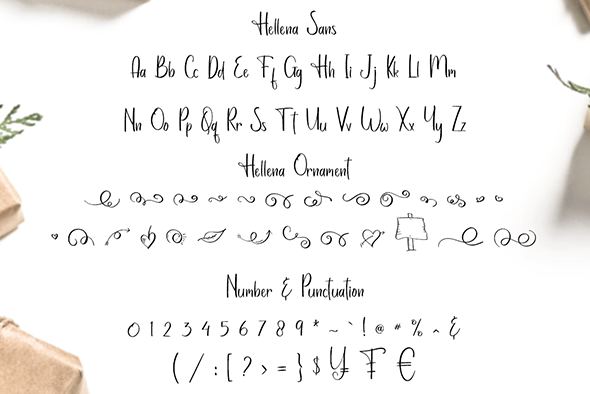 Hellena Sans
Aa Bb Cc Dd Ee Ff Gg Hh Ii Jj Kk Ll Mm
Nn Oo Pp Qq Rr Ss Tt Uu Vv Ww Xx Yy Zz
Hellena Ornament
Number & Punctuation
0 1 2 3 4 5 6 7 8 9 * ~ ` ! @ # % ^ &
( / : [ ? > = } $ ¥ ₮ €